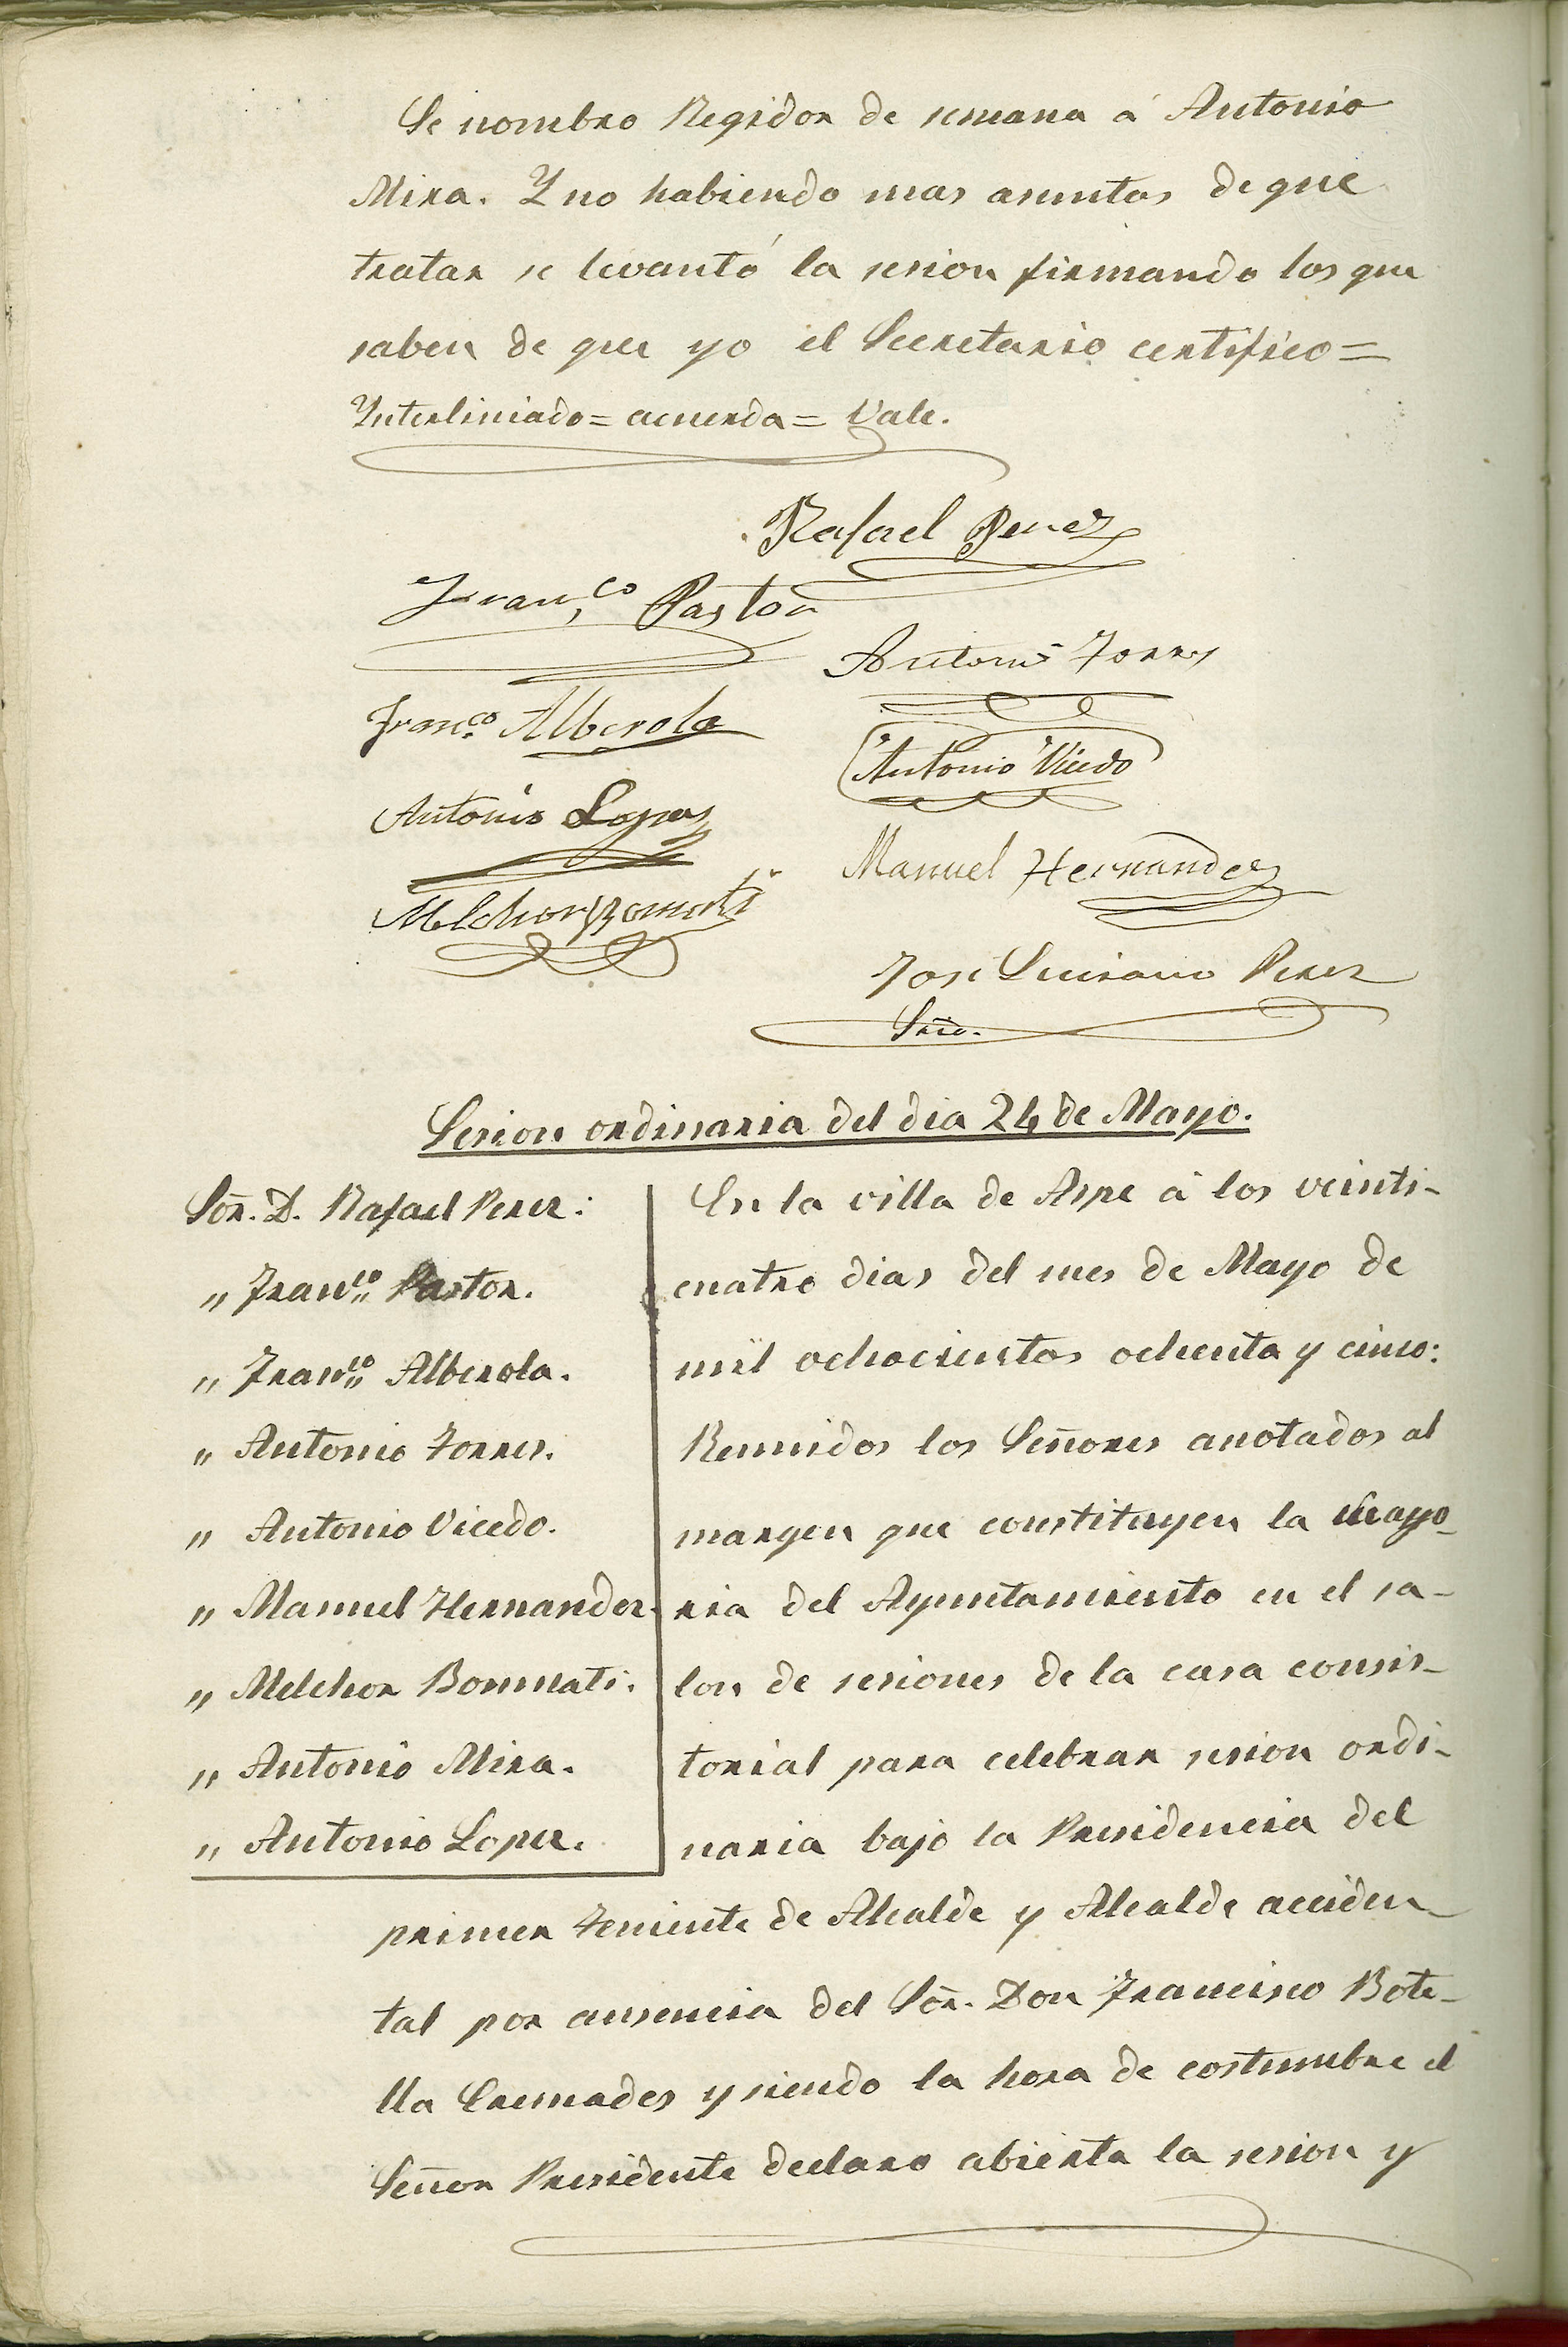 Se nombro Regidor de semana á Antonio
Mira. Y no habiendo mas asuntos de que
tratar se levantó la sesion firmando los que
saben de que yo el Secretario certifico=
Interliniado= acuerda= Vale.
Rafael Perez
Fran,co Pastor
Antonio Torres
Franco. Alberola
Antonio Vicedo
Antonio Lopez
Manuel Hernandez
Melchor Bomati
José Suciano Perez
Srio.
Sesion ordinaria del dia 24 de Mayo.
Sor. D. Rafael Perez:
" Franco. Pastor.
" Franco. Alberola.
" Antonio Torres.
" Antonio Vicedo.
" Manuel Hernandez.
" Melchor Bonmati.
" Antonio Mira.
" Antonio Lopez.
En la villa de Aspe á los veinti-
cuatro dias del mes de Mayo de
mil ochocientos ochenta y cinco:
Reunidos los Señores anotados al
margen que constituyen la mayo-
ria del Ayuntamiento en el sa-
lon de sesiones de la casa consis-
torial para celebrar sesion ordi-
naria bajo la Presidencia del
primer Teniente de Alcalde y Alcalde acciden-
tal por ausencia del Sor. Don Francisco Bote-
lla Cremades y siendo la hora de costumbre el
Señor Presidente declaro abierta la sesion y